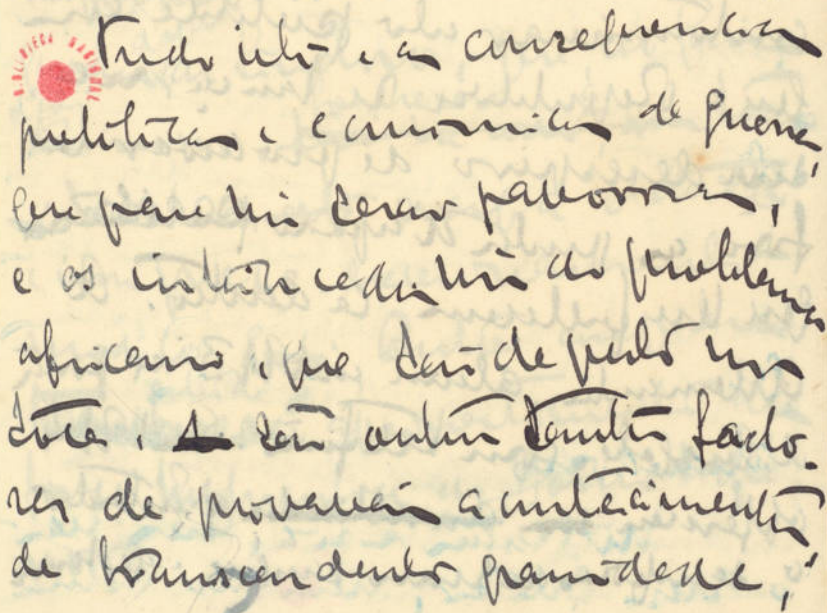 BIBLIOTECA NACIONAL
Tudo isto e as consequencias
politicas e economicas da guerra,
que para nós serão pavorosas,
e os do problema
africano, que tão de perto nos
toca, são outros tantos facto-
res de provaveis acontecimentos
de transcendente gravidade,